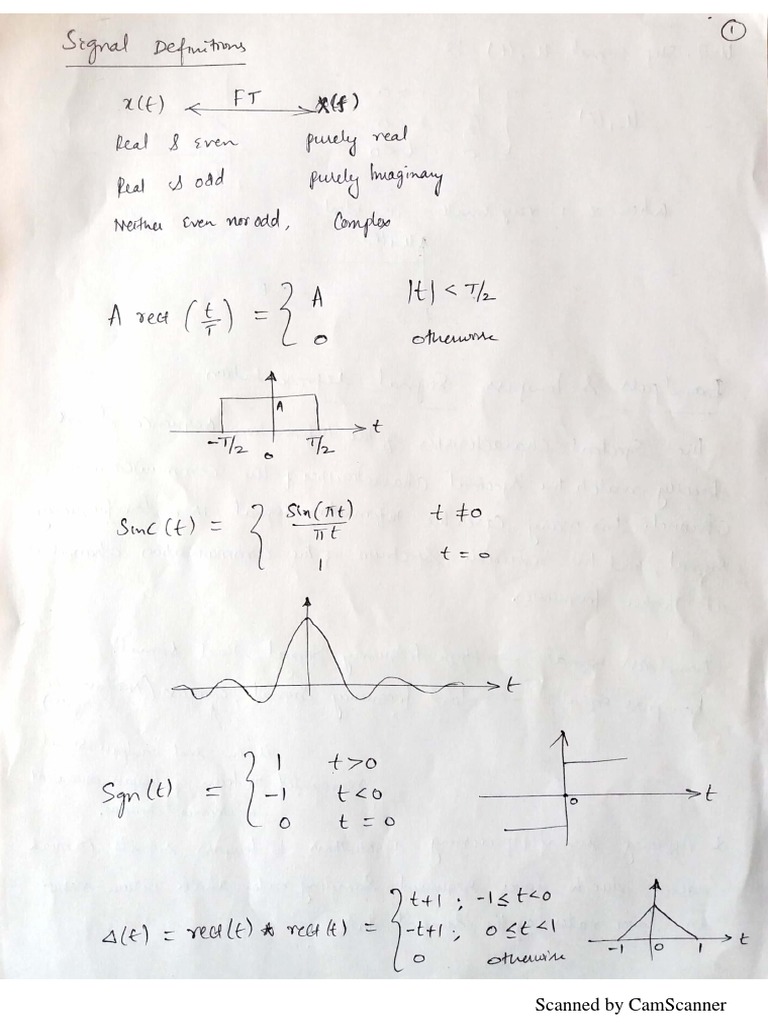 ①
Signal Definitions
x(t) ⟵ FT ⟶ X(f)
Real & Even purely real
Real & odd purely Imaginary
Neither Even nor odd, Complex
A rect (t/T) = { A |t| < T/2
0 otherwise
A
-T/2 0 T/2 t
Sinc(t) = { Sin(πt)/πt t ≠ 0
1 t = 0
t
Sgn(t) = { 1 t > 0
-1 t < 0
0 t = 0
0 t
Δ(t) = rect(t) * rect(t) = { t+1 ; -1 ≤ t < 0
-t+1 ; 0 ≤ t < 1
0 otherwise
-1 0 1 t
Scanned by CamScanner